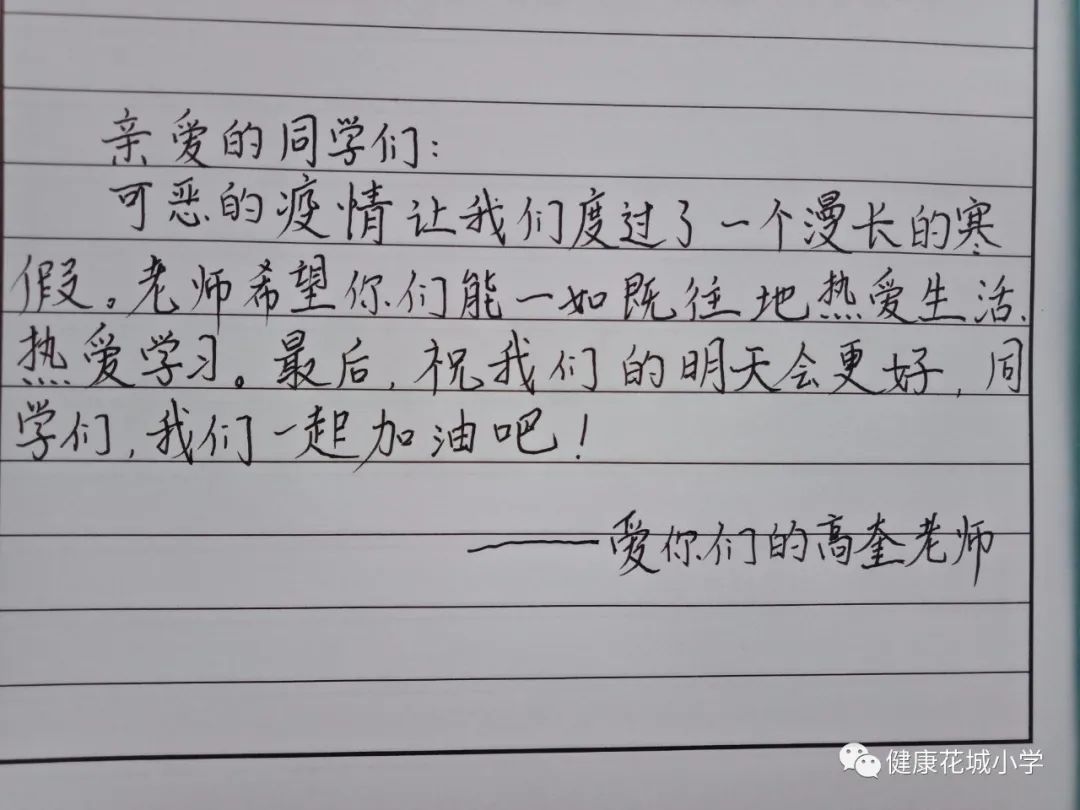 亲爱的同学们:
可恶的疫情让我们度过了一个漫长的寒
假。老师希望你们能一如既往地热爱生活、
热爱学习。最后,祝我们的明天会更好,同
学们,我们一起加油吧!
——爱你们的高奎老师
健康花城小学